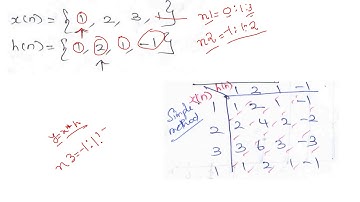 x(n) = { 1, 2, 3, 1 }
n1 = 0:1:3
h(n) = { 1, 2, 1, -1 }
n2 = -1:1:2
↑
y = x * h
n3 = -1:1:
Simple method
x(n) h(n) 1 2 1 -1
1 1 2 1 -1
2 2 4 2 -2
3 3 6 3 -3
1 1 2 1 -1